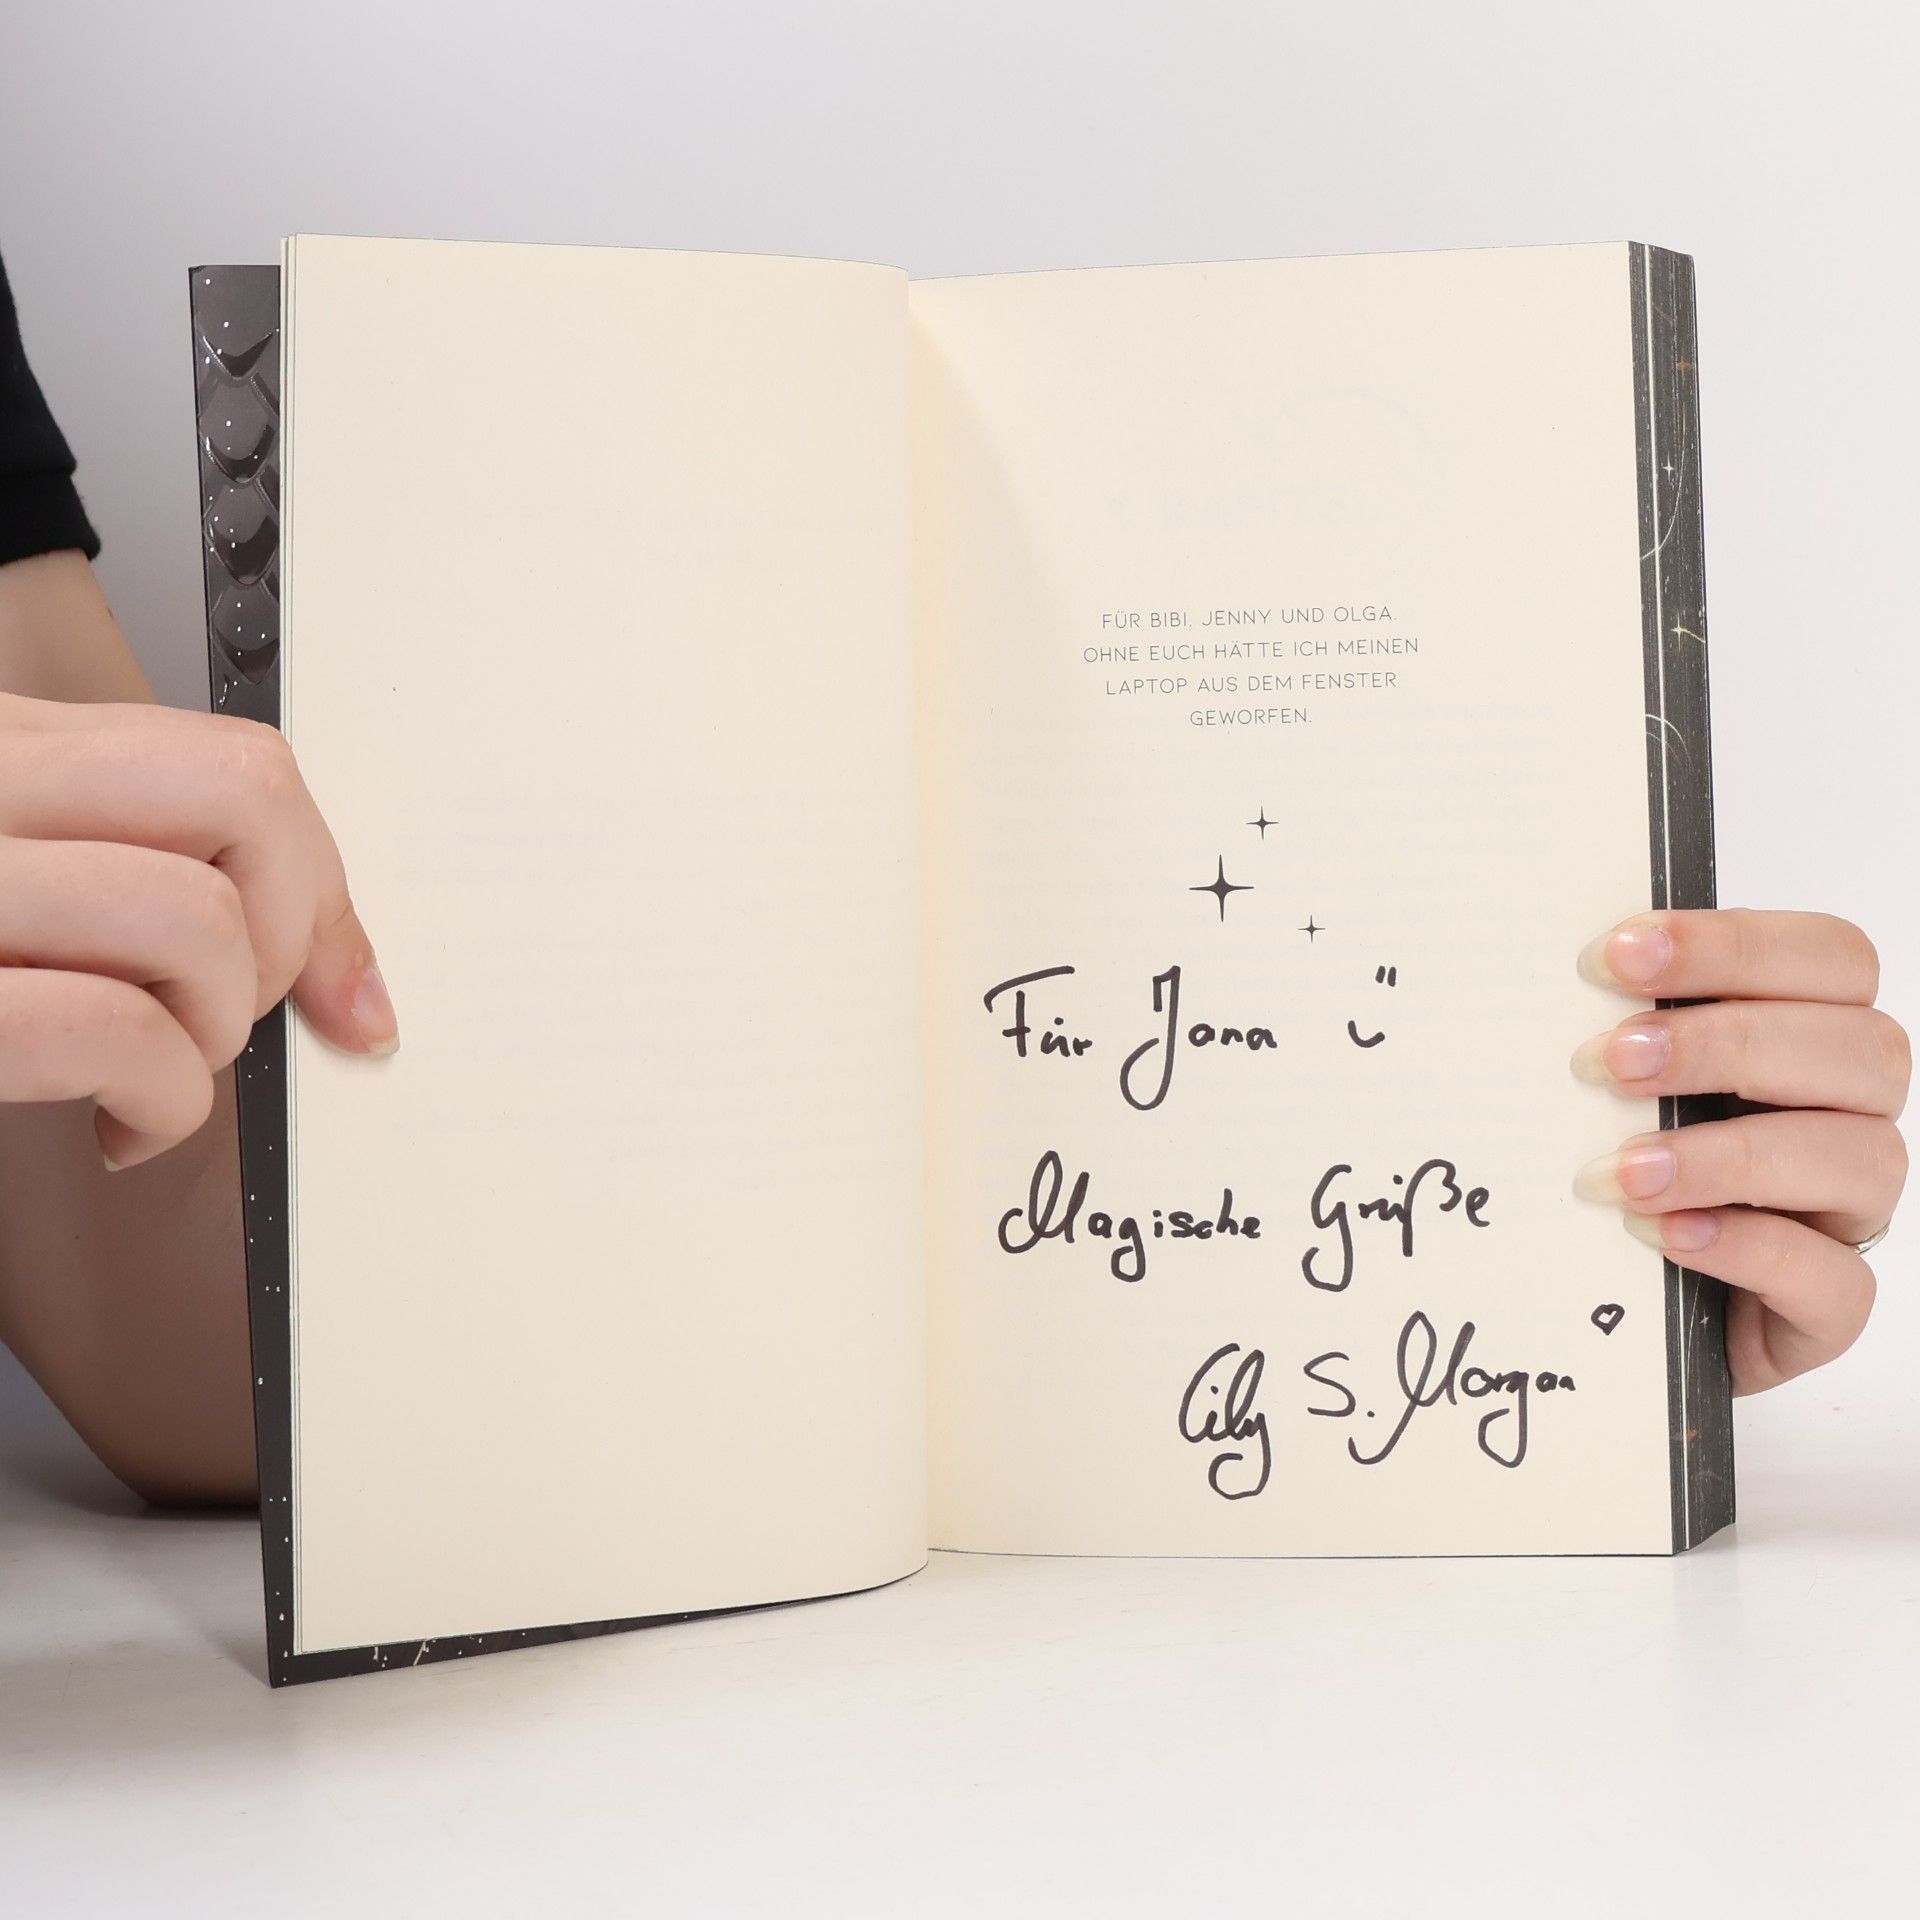 FÜR BIBI, JENNY UND OLGA.
OHNE EUCH HÄTTE ICH MEINEN
LAPTOP AUS DEM FENSTER
GEWORFEN.
Für Jana
Magische Grüße
Lily S. Morgan